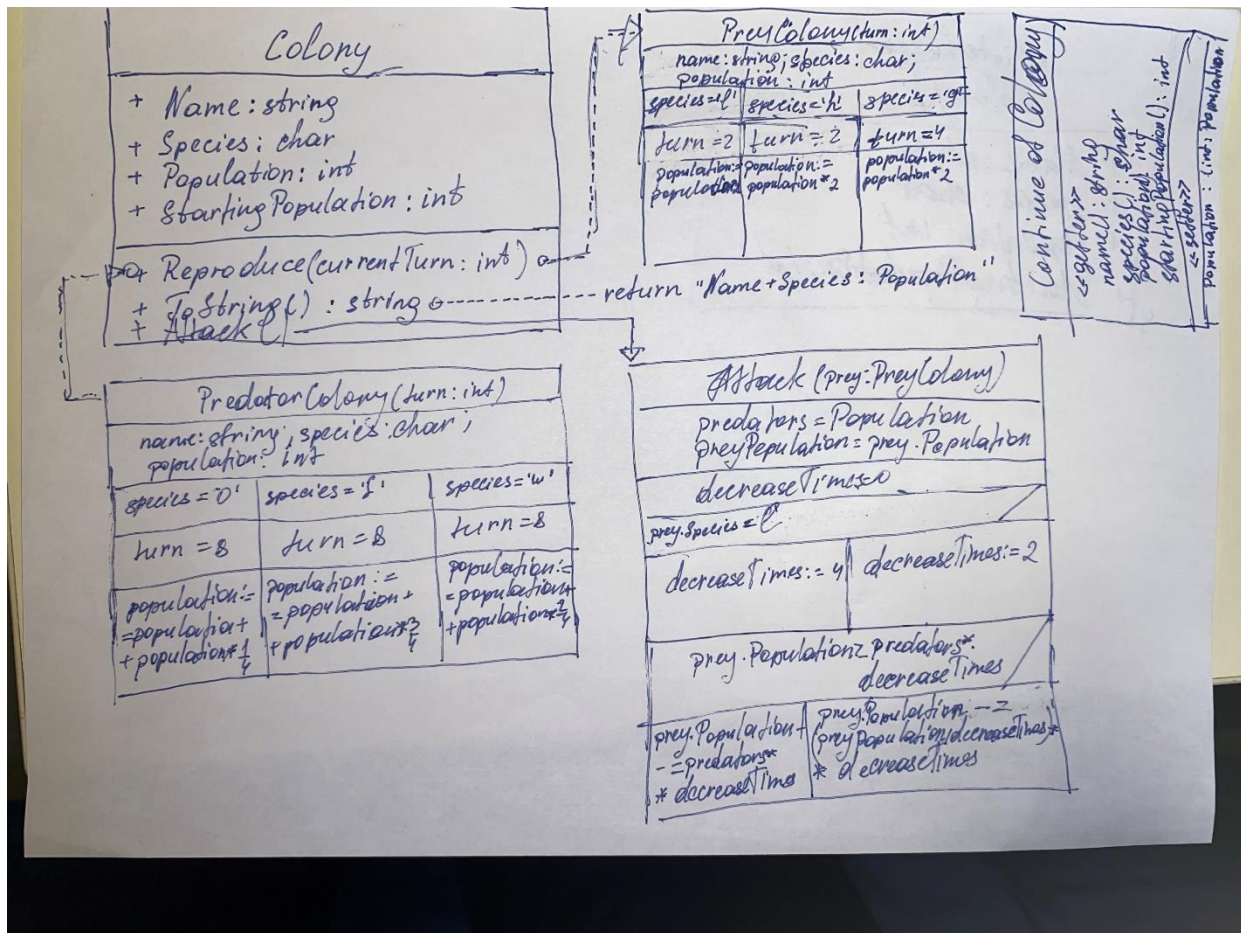 Colony
+ Name: string
+ Species: char
+ Population: int
+ StartingPopulation: int
+ Reproduce(currentTurn: int)
+ ToString() : string
+ Attack()
return "Name+Species: Population"
PreyColony(turn: int)
name: string; species: char;
population: int
species='l' species='h' species='g'
turn=2 turn=2 turn=4
population:= population:= population:=
population*2 population*2
Continue of Colony
<<getter>>
name(): string
species(): char
population: int
startingPopulation(): int
<<setter>>
Population: (int: Population)
PredatorColony(turn: int)
name: string; species: char;
population: int
species='O' species='f' species='w'
turn=8 turn=8 turn=8
population:= population:= population:=
=population+ =population+ =population+
+population*1/4 +population*3/4 +population*2/4
Attack (prey: PreyColony)
predators = Population
preyPopulation = prey.Population
decreaseTimes=0
prey.Species = l
decreaseTimes:=4 decreaseTimes:=2
prey.Population predators*
decreaseTimes
prey.Population prey.Population -=
-=predators* (preyPopulation/decreaseTimes)*
* decreaseTimes * decreaseTimes